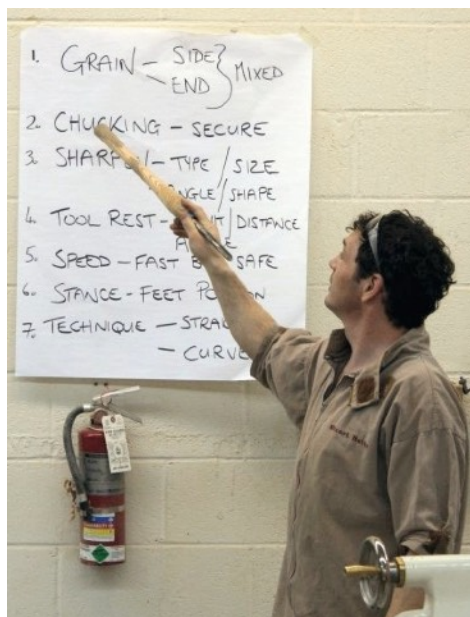 1. GRAIN – SIDE
END } MIXED
2. CHUCKING – SECURE
3. SHARP – TYPE / SIZE
ANGLE / SHAPE
4. TOOL REST – / DISTANCE
5. SPEED – FAST SAFE
6. STANCE – FEET
7. TECHNIQUE –
– CURVE